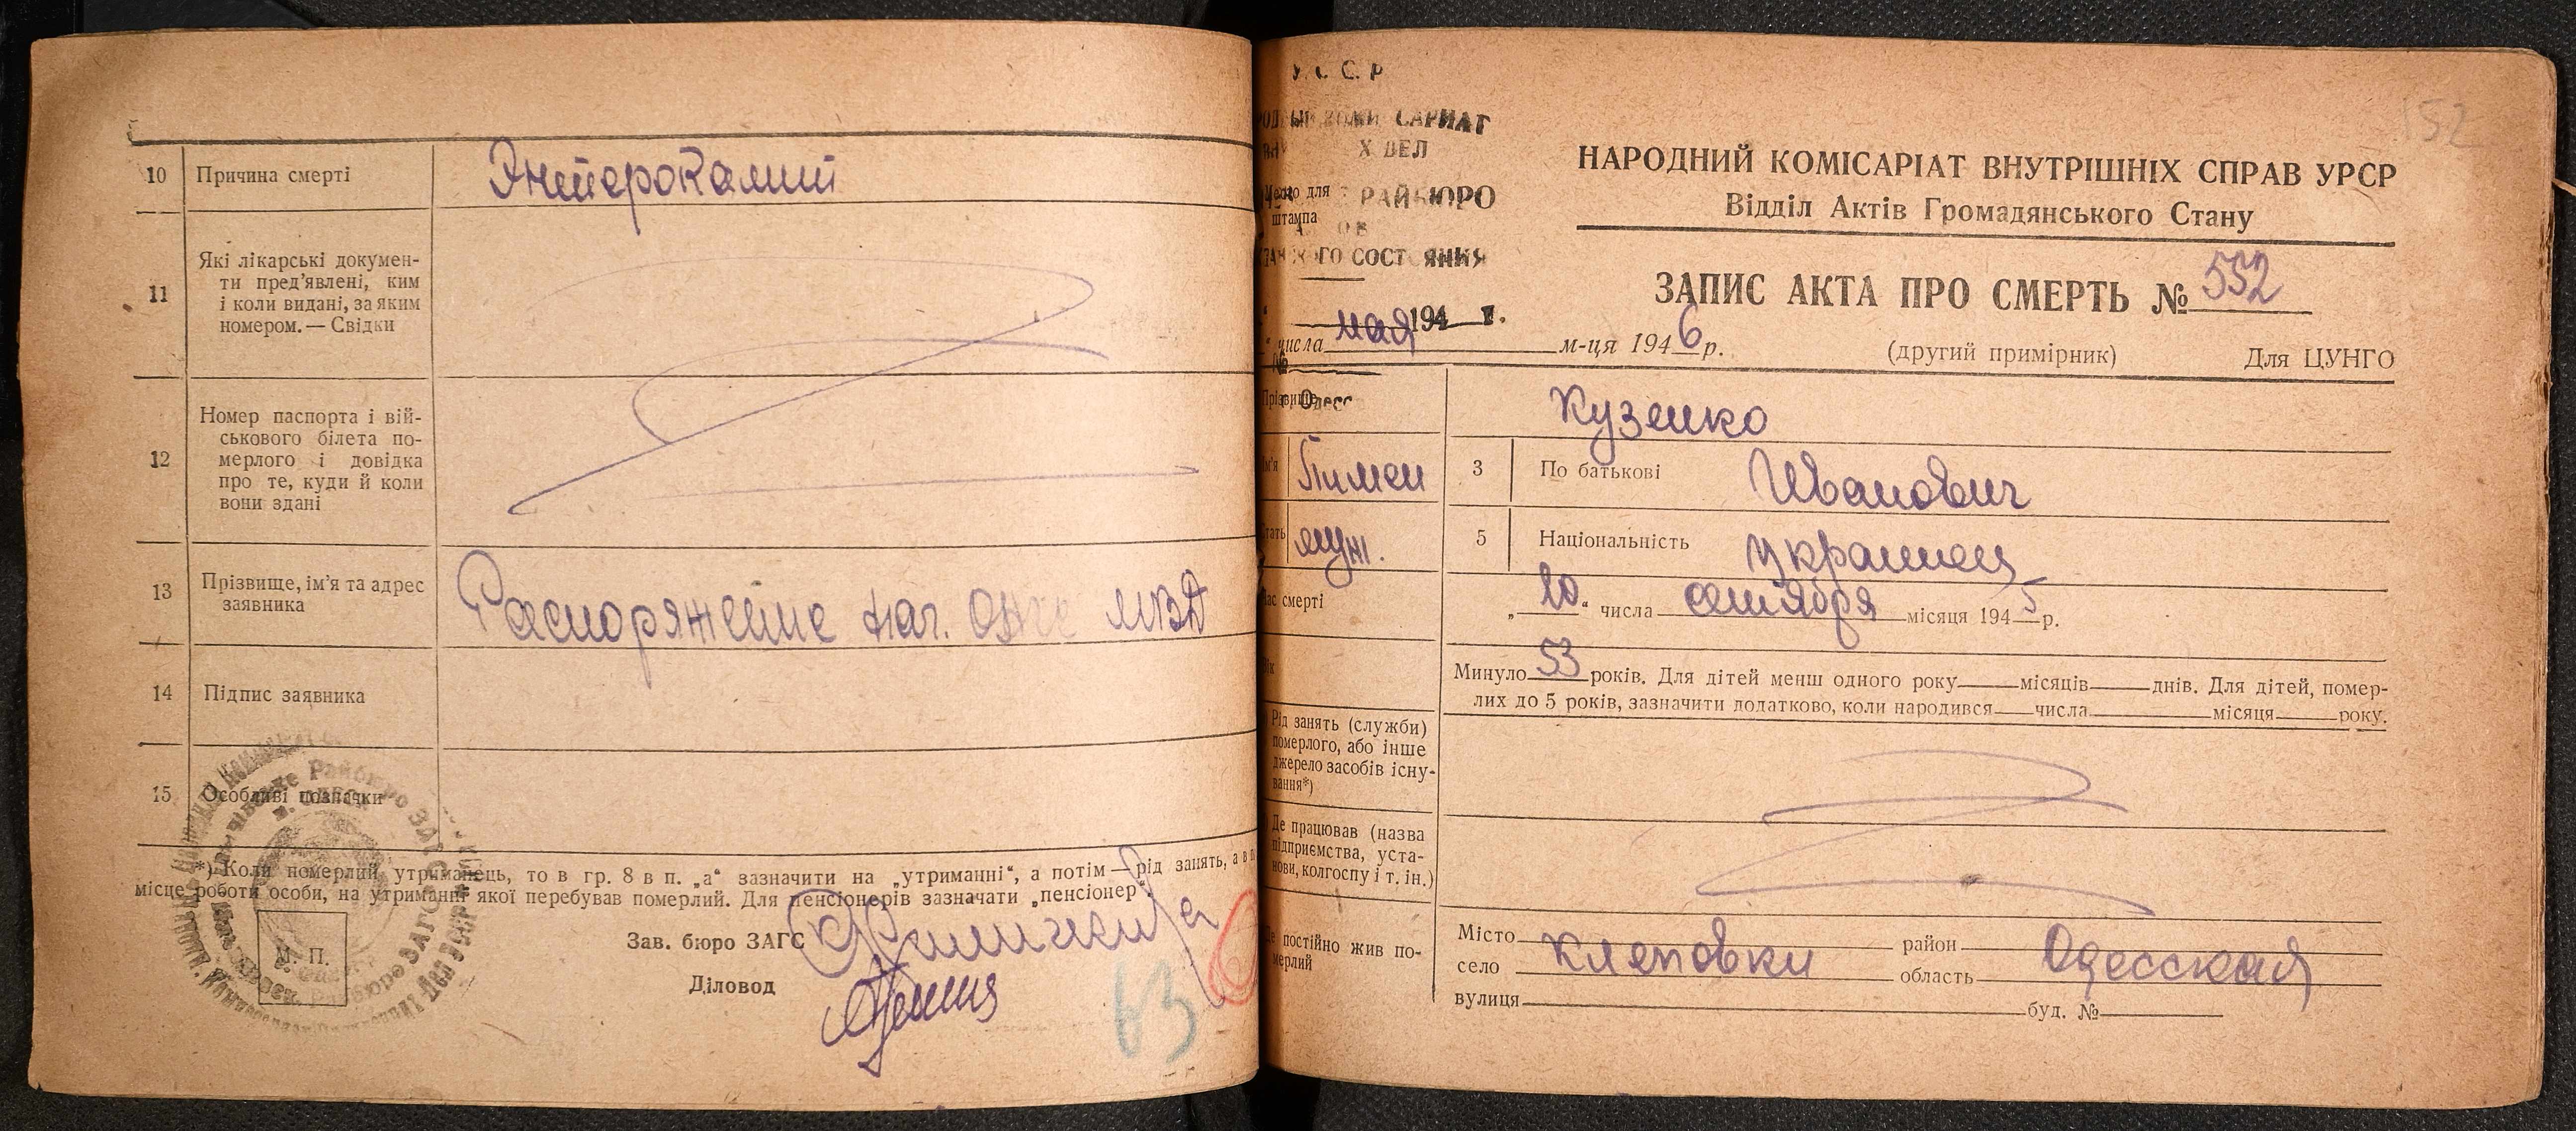 10 Причина смерті Энтероколит
11 Які лікарські докумен-
ти пред'явлені, ким
і коли видані, за яким
номером. — Свідки
12 Номер паспорта і вій-
ськового білета по-
мерлого і довідка
про те, куди й коли
вони здані
13 Прізвище, ім'я та адрес
заявника
Распоряжение нач. МВД
14 Підпис заявника
15 Особливі позначки
*) Коли померлий утриманець, то в гр. 8 в п. „а“ зазначити на „утриманні“, а потім — рід занять, а в п.
місце роботи особи, на утриманні якої перебував померлий. Для пенсіонерів зазначати „пенсіонер“.
Зав. бюро ЗАГС
М. П.
Діловод
63
У. С. С. Р
САРИАТ
Х ДЕЛ
Место для РАЙБЮРО
штампа
ГО СОСТ ЯНИЯ
194 г.
152
НАРОДНИЙ КОМІСАРІАТ ВНУТРІШНІХ СПРАВ УРСР
Відділ Актів Громадянського Стану
ЗАПИС АКТА ПРО СМЕРТЬ № 552
числа мая м-ця 1946 р. (другий примірник) Для ЦУНГО
Прізвище Кузенко
Ім'я Пимен 3 По батькові Иванович
Стать муж. 5 Національність украинец
Час смерті „20“ числа сентября місяця 1945 р.
Вік
Минуло 53 років. Для дітей менш одного року місяців днів. Для дітей, помер-
лих до 5 років, зазначити додатково, коли народився числа місяця року.
Рід занять (служби)
померлого, або інше
джерело засобів існу-
вання*)
Де працював (назва
підприємства, уста-
нови, колгоспу і т. ін.)
Де постійно жив по-
мерлий
Місто район
село Кляповки область Одесская
вулиця буд. №